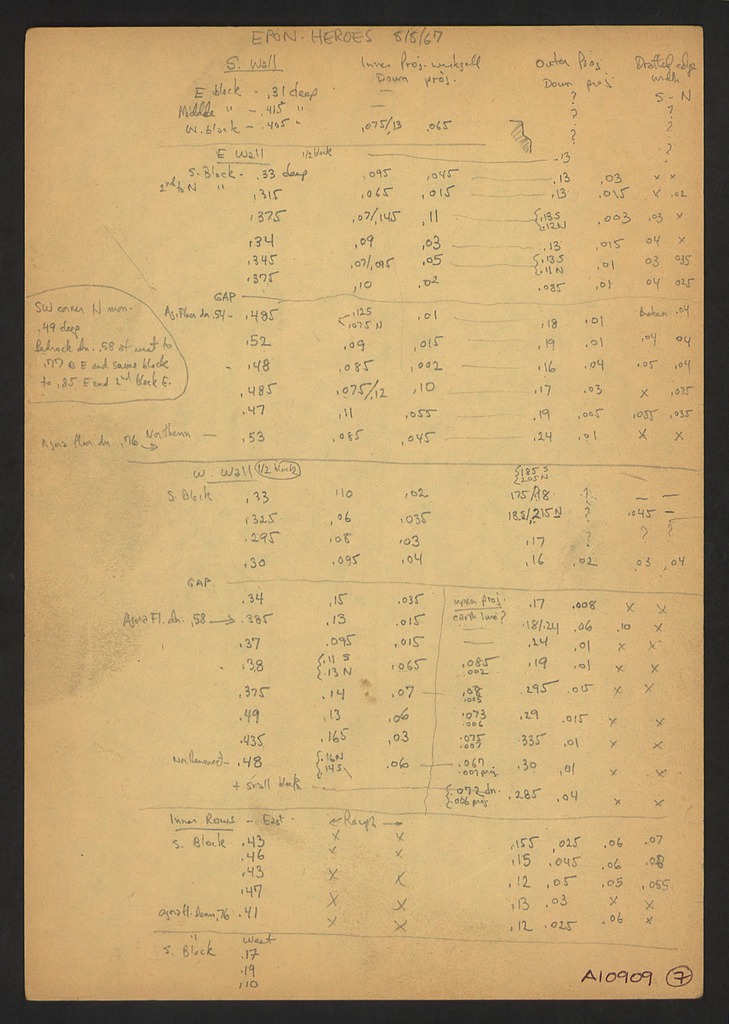 EPON. HEROES 8/8/67
S. Wall Inner Proj. Outer Proj Drafted edge
Down proj. Down proj width
E block - .31 deep — ? S - N
Middle " - .415 " — ? ?
W. block - .405 " .075/.13 .065 ? ?
E Wall 1/2 block .13 ?
S. Block - .33 deep .095 .045 .13 .03 x x
2nd to N " .315 .065 .015 .13 .015 x .02
.375 .07/.145 .11 {.13 S .12 N .003 .03 x
.34 .09 .03 .13 .015 04 x
.345 .07/.095 .05 {.135 .11 N .01 03 035
.375 .10 .02 .085 .01 04 025
GAP
SW corner N mon.
.49 deep
Bedrock dn. .58 at west to
.77 @ E end same block
to .85 E end 2nd block E.
Ag. Floor dn. .54 - .485 .125 .075 N .01 .18 .01 Broken .04
.52 .09 .015 .19 .01 .04 04
- .48 .085 .002 .16 .04 .05 .04
.485 .075/.12 .10 .17 .03 x .075
.47 .11 .055 .19 .005 .055 .035
Agora floor dn. .76 → Northern — .53 .085 .045 .24 .01 x x
W. Wall (1/2 block) {.185 S .205 N
S. Block .33 .10 .02 175/.18 ? — —
.325 .06 .035 18.5/.215 N ? .045 —
.295 .08 .03 .17 ? ? ?
.30 .095 .04 .16 .02 .03 .04
GAP
.34 .15 .035 upper proj. .17 .008 x x
Agora Fl. dn. .58 → .385 .13 .015 earth line? .18/.24 .06 .10 x
.37 .095 .015 — .24 .01 x x
.38 {.11 S .13 N .065 .085 .002 .19 .01 x x
.375 .14 .07 .08 .003 .295 .015 x x
.49 .13 .06 .073 .006 .29 .015 x x
.435 .165 .03 .075 .007 .335 .01 x x
Northernmost - .48 {.16 N .14 S .06 .067 .007 proj. .30 .01 x x
+ small block {.072 dn. .006 proj .285 .04 x x
Inner Rows - East ← Rough →
S. Block .43 x x .155 .025 .06 .07
.46 x x .15 .045 .06 .08
.43 x x .12 .05 .05 .055
.47 x x .13 .03 x x
agora fl. down .76 .41 x x .12 .025 .06 x
" West
S. Block .17
.19
.10
A10909 7